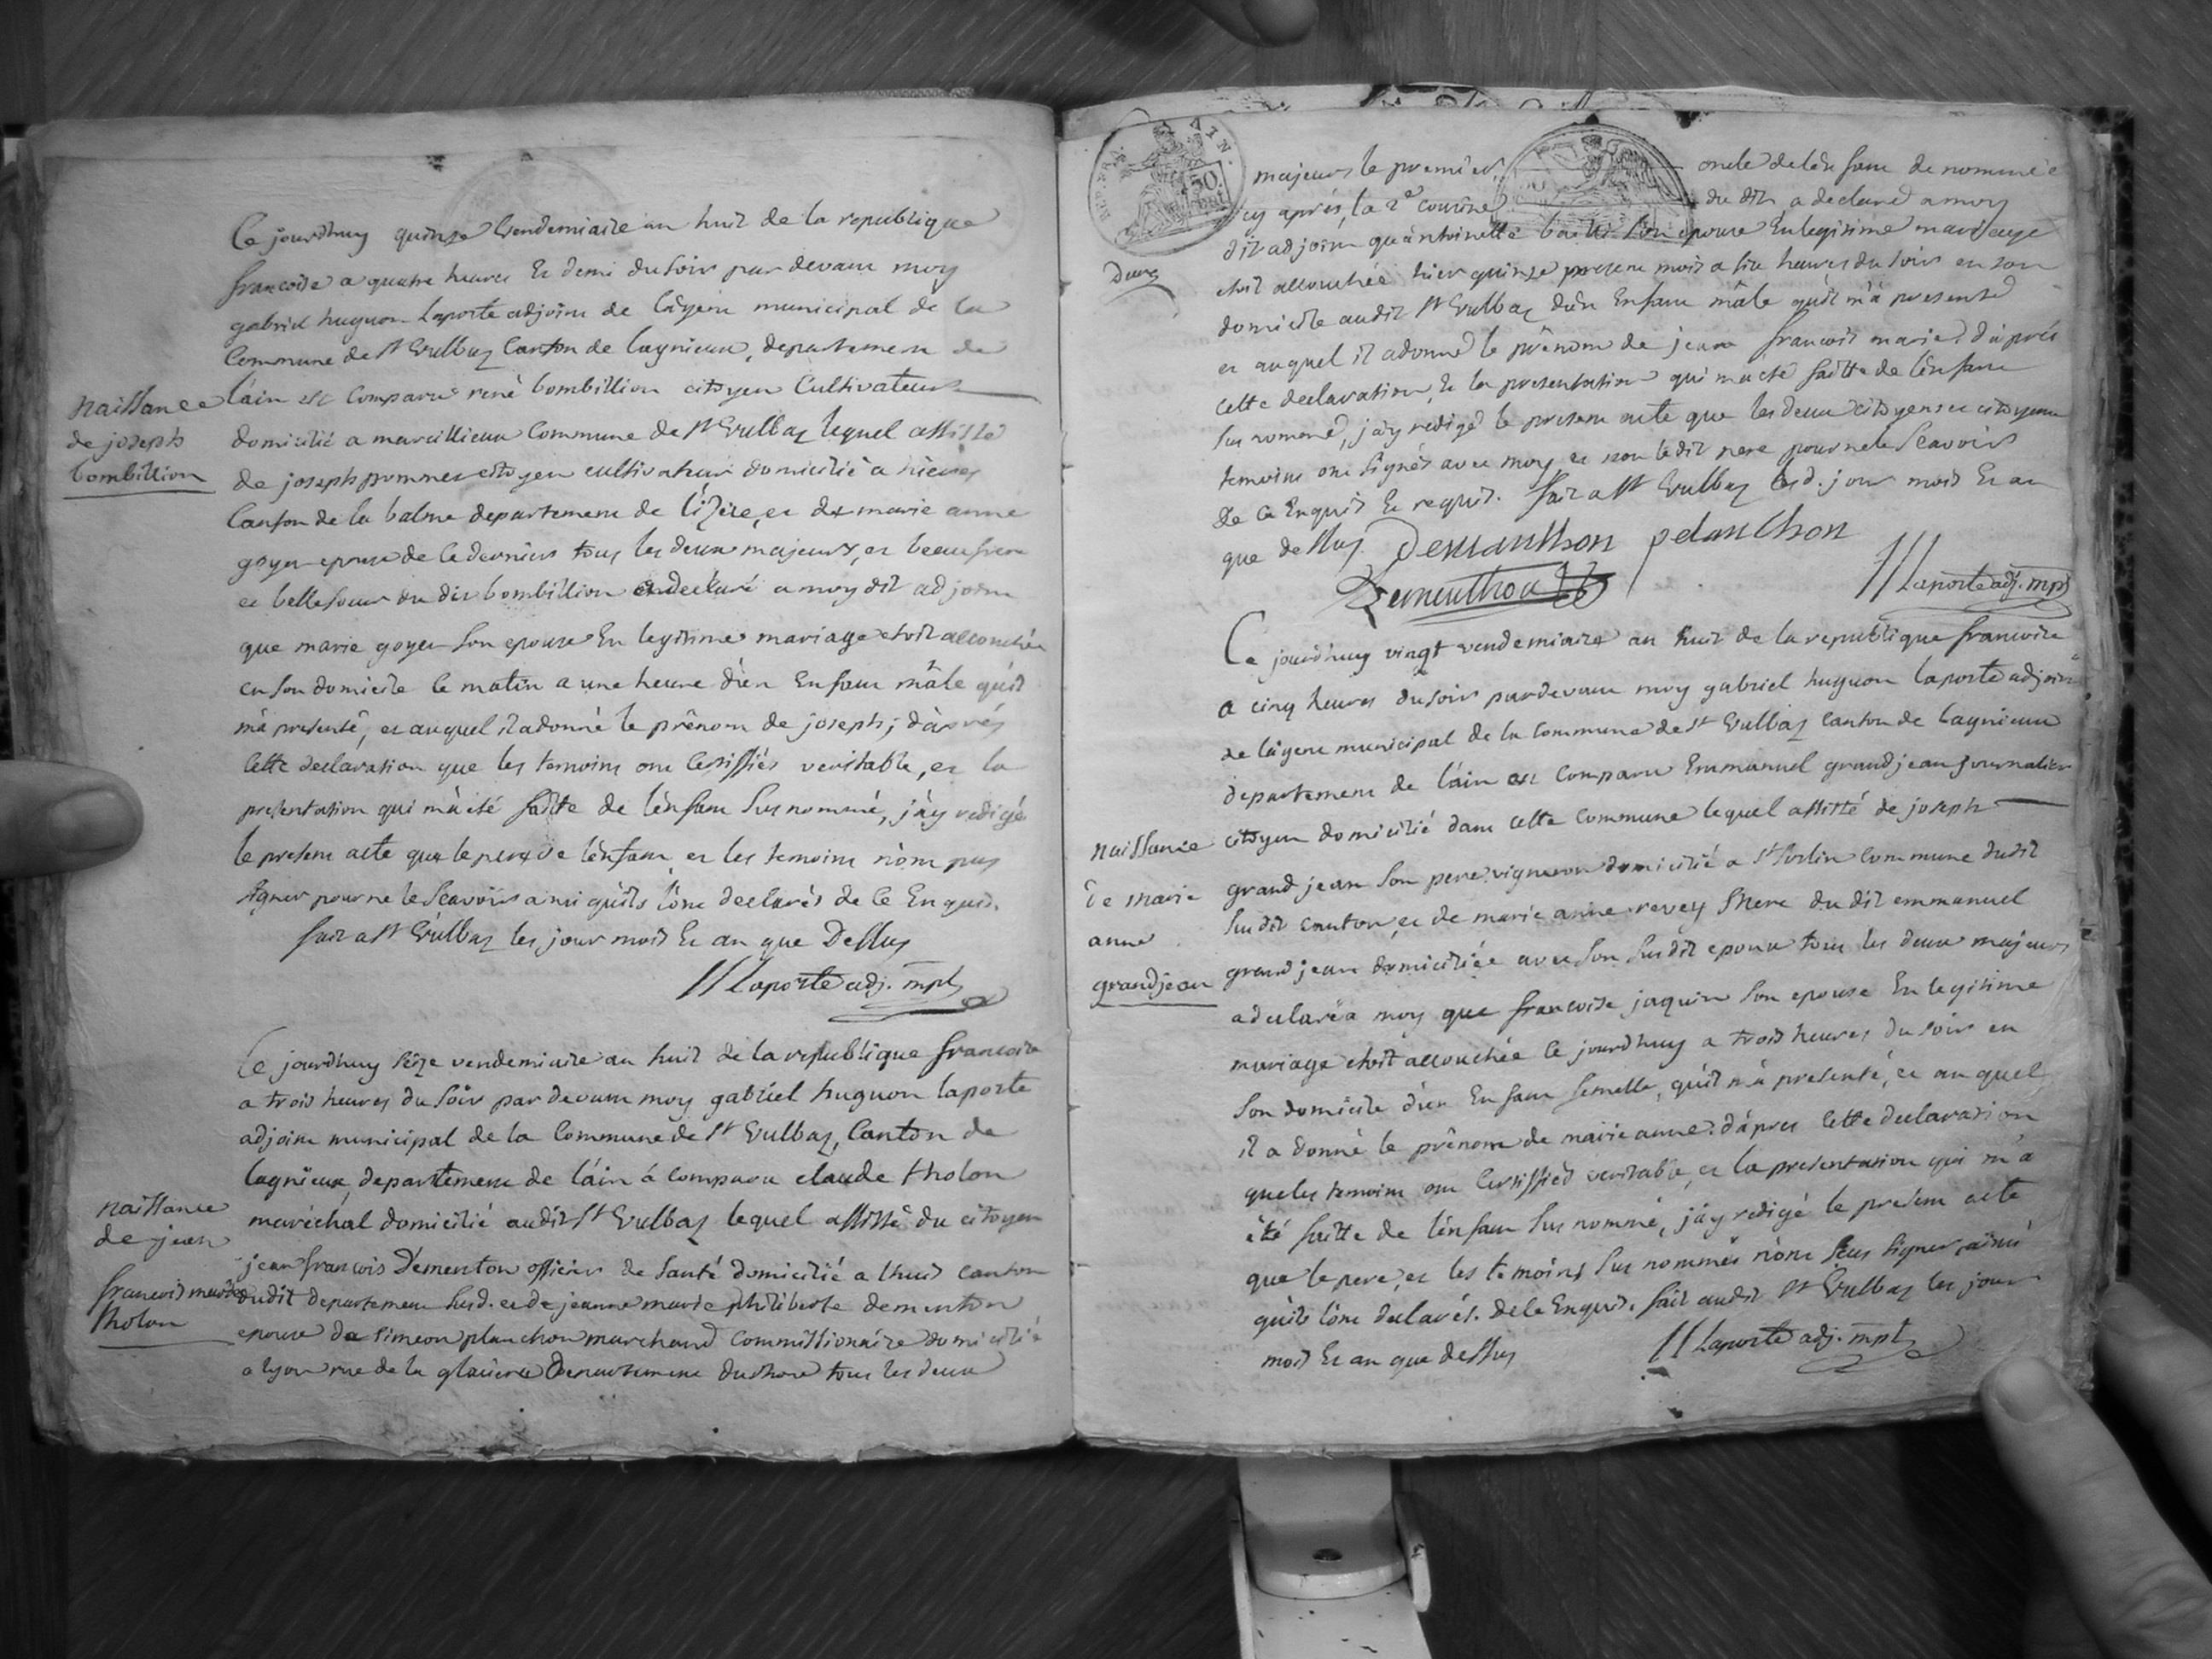 Ce jourdhuy quinze Vendemiaire an huit de la republique
francoise a quatre heures Et demi du soir par devant moy
gabriel huguon Laporte adjoint de lagent municipal de la
Commune de St Vullbaz Canton de lagnieux, departement de
l'ain est Comparu renè bombillion citoyen Cultivateur
naissance
de joseph
bombillion
domicilié a marcillieux Commune de St Vullbaz lequel assisté
de joseph pommer citoyen cultivateur domicilié a hieres
Canton de la balme departement de l'izere, et de marie anne
goyer epouse de ce dernier tous les deux majeurs, et beau frere
et belle soeur du dit bombillion declaré a moy dit adjoint
que marie goyer son epouse En legitime mariage etoit accouchée
en son domicile ce matin a une heure d'un Enfant mâle qu'il
m'a presenté, et auquel il a donné le prênom de joseph; d'après
cette declaration que les temoins ont certiffiés veritable, et la
presentation qui m'a été faitte de l'enfant sus nommé, j'ay redigé
le present acte que le pere de l'enfant et les temoins n'ont pas
signer pour ne le scavoir ainsi qu'ils l'ont declarés de ce Enquis.
fait a St Vullbaz les jour mois Et an que Dessus
Laporte adj. mpl
Ce jourdhuy seize vendemiaire an huit de la republique francoise
a trois heures du soir par devant moy gabriel huguon laporte
adjoint municipal de la Commune de St Vullbaz, Canton de
lagnieux, departement de l'ain á comparu claude tholon
naissance
de jean
francois marie
tholon
maréchal domicilié audit St Vullbaz lequel assisté du citoyen
jean francois Dementon officier de santé domicilié a lhuis canton
dudit departement susd. et de jeanne marie philiberte dementon
epouse de simeon planchon marchand Commissionaire domicilié
a lyon rue de la glaciere Departement du rhone tous les deux
majeurs le premier oncle de l'enfant de nommé
cy après, la 2e cousine du dit a declaré a moy
dit adjoint qu'antoinette son epouse En legitime mariage
etoit accouchée hier quinze present mois a six heures du soir en son
domicile audit St Vullbaz d'un Enfant mâle qu'il m'a presenté
et auquel il a donné le prênom de jean francois marie. d'après
cette declaration, Et la presentation qui m'a eté faitte de l'enfant
sus nommé, j'ay redigé le present acte que les deux citoyens et citoyenne
temoins ont signés avec moy et non ledit pere pour ne le scavoir
De ce Enquis Et requis. fait a St Vullbaz lesd. jour mois Et an
que dessus
Laporte adj. mpl
Ce jourdhuy vingt vendemiaire an huit de la republique francoise
a cinq heures du soir pardevant moy gabriel huguon laporte adjoint
de lagent municipal de la Commune de St Vullbaz Canton de lagnieux
departement de l'ain est Comparu Emmanuel grandjean journalier
naissance
de marie
anne
grandjean
citoyen domicilié dans cette Commune lequel assisté de joseph
grand jean son pere vigneron domicilié a St sorlin Commune dudit
susdit canton, et de marie anne revey mere du dit emmanuel
grand jean domiciliée avec son susdit epoux tous les deux majeurs
a declaré a moy que francoise jaquin son epouse En legitime
mariage etoit accouchée ce jourdhuy a trois heures du soir en
son domicile d'un Enfant femelle, qu'il m'a presenté, et au quel
il a donné le prênom de marie anne. d'apres cette declaration
que les temoins ont certiffiés veritable, et la presentation qui m'a
été faitte de l'enfant sus nommé, j'ay redigé le present acte
que le pere, et les temoins sus nommés n'ont sçus signer, ainsi
qu'ils l'ont declarés. de ce Enquis. fait audit St Vullbaz les jour
mois Et an que dessus
Laporte adj. mpl